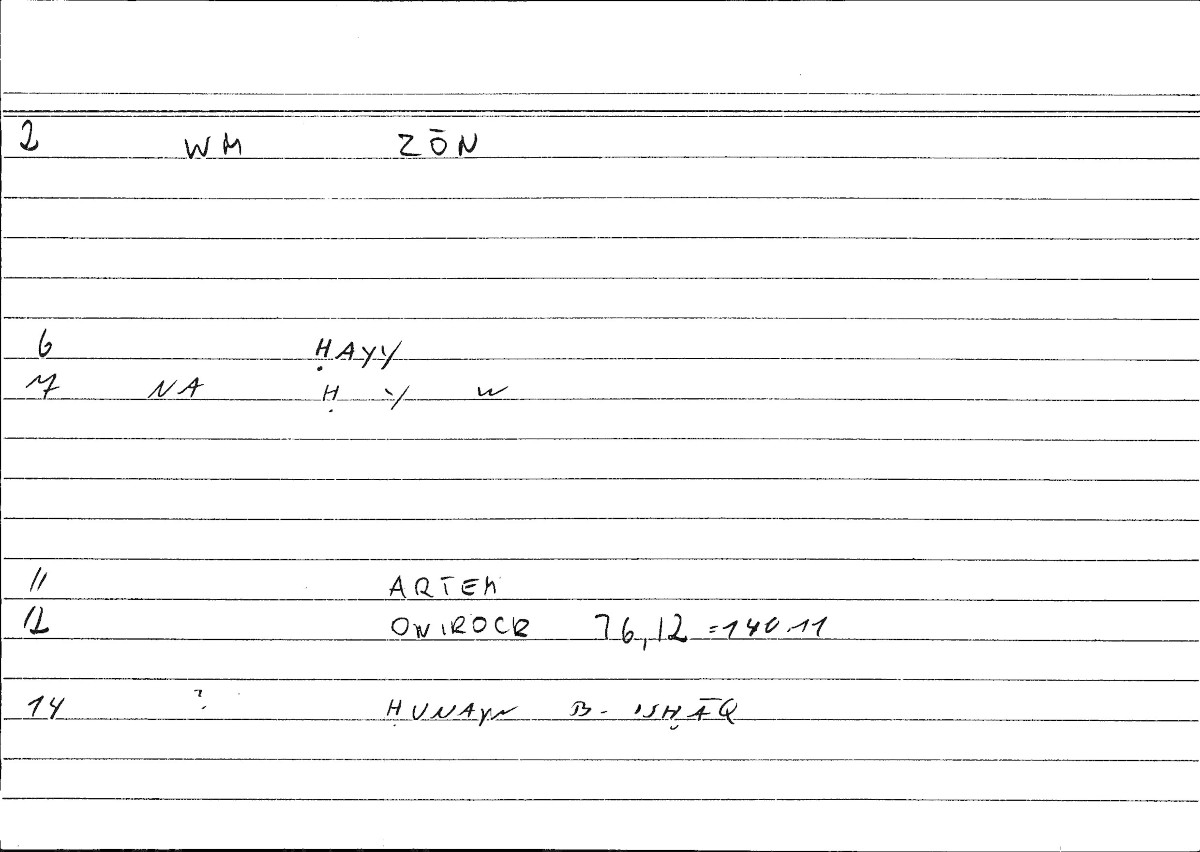 2 WM ZŌN
6 ḤAYY
7 NA Ḥ Y W
11 ARTEM
12 ONIROCR 76,12 =140.11
14 ? ḤUNAYN B- ISḤĀQ